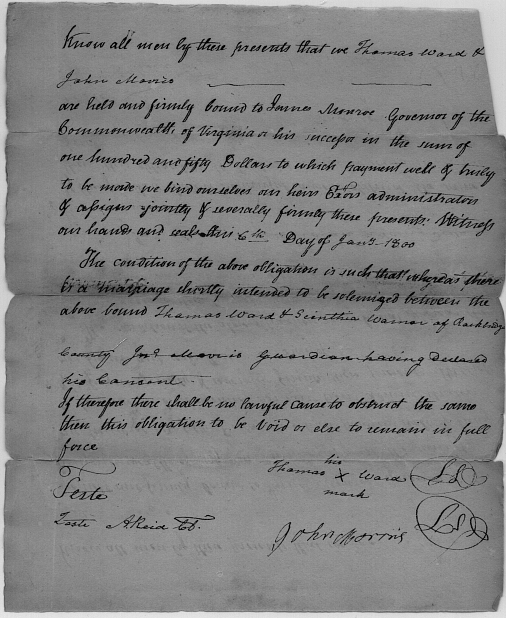 Know all men by these presents that we Thomas Ward &
John Morris
are held and firmly bound to James Monroe Governor of the
Commonwealth of Virginia or his successor in the sum of
one hundred and fifty Dollars to which payment well & truly
to be made we bind ourselves our heirs Exors administrators
& assigns jointly & severally firmly these presents. Witness
our hands and seals this 6th Day of Jany 1800
The condition of the above obligation is such that whereas there
is a marriage shortly intended to be solemnized between the
above bound Thomas Ward & Scinthia Warnor of Rockbridge
County Jno Morris Guardian having Declared
his Consent
If therefore there shall be no lawful cause to obstruct the same
then this obligation to be Void or else to remain in full
force
Teste
Teste A Reid
his
Thomas X Ward
mark
John Morris